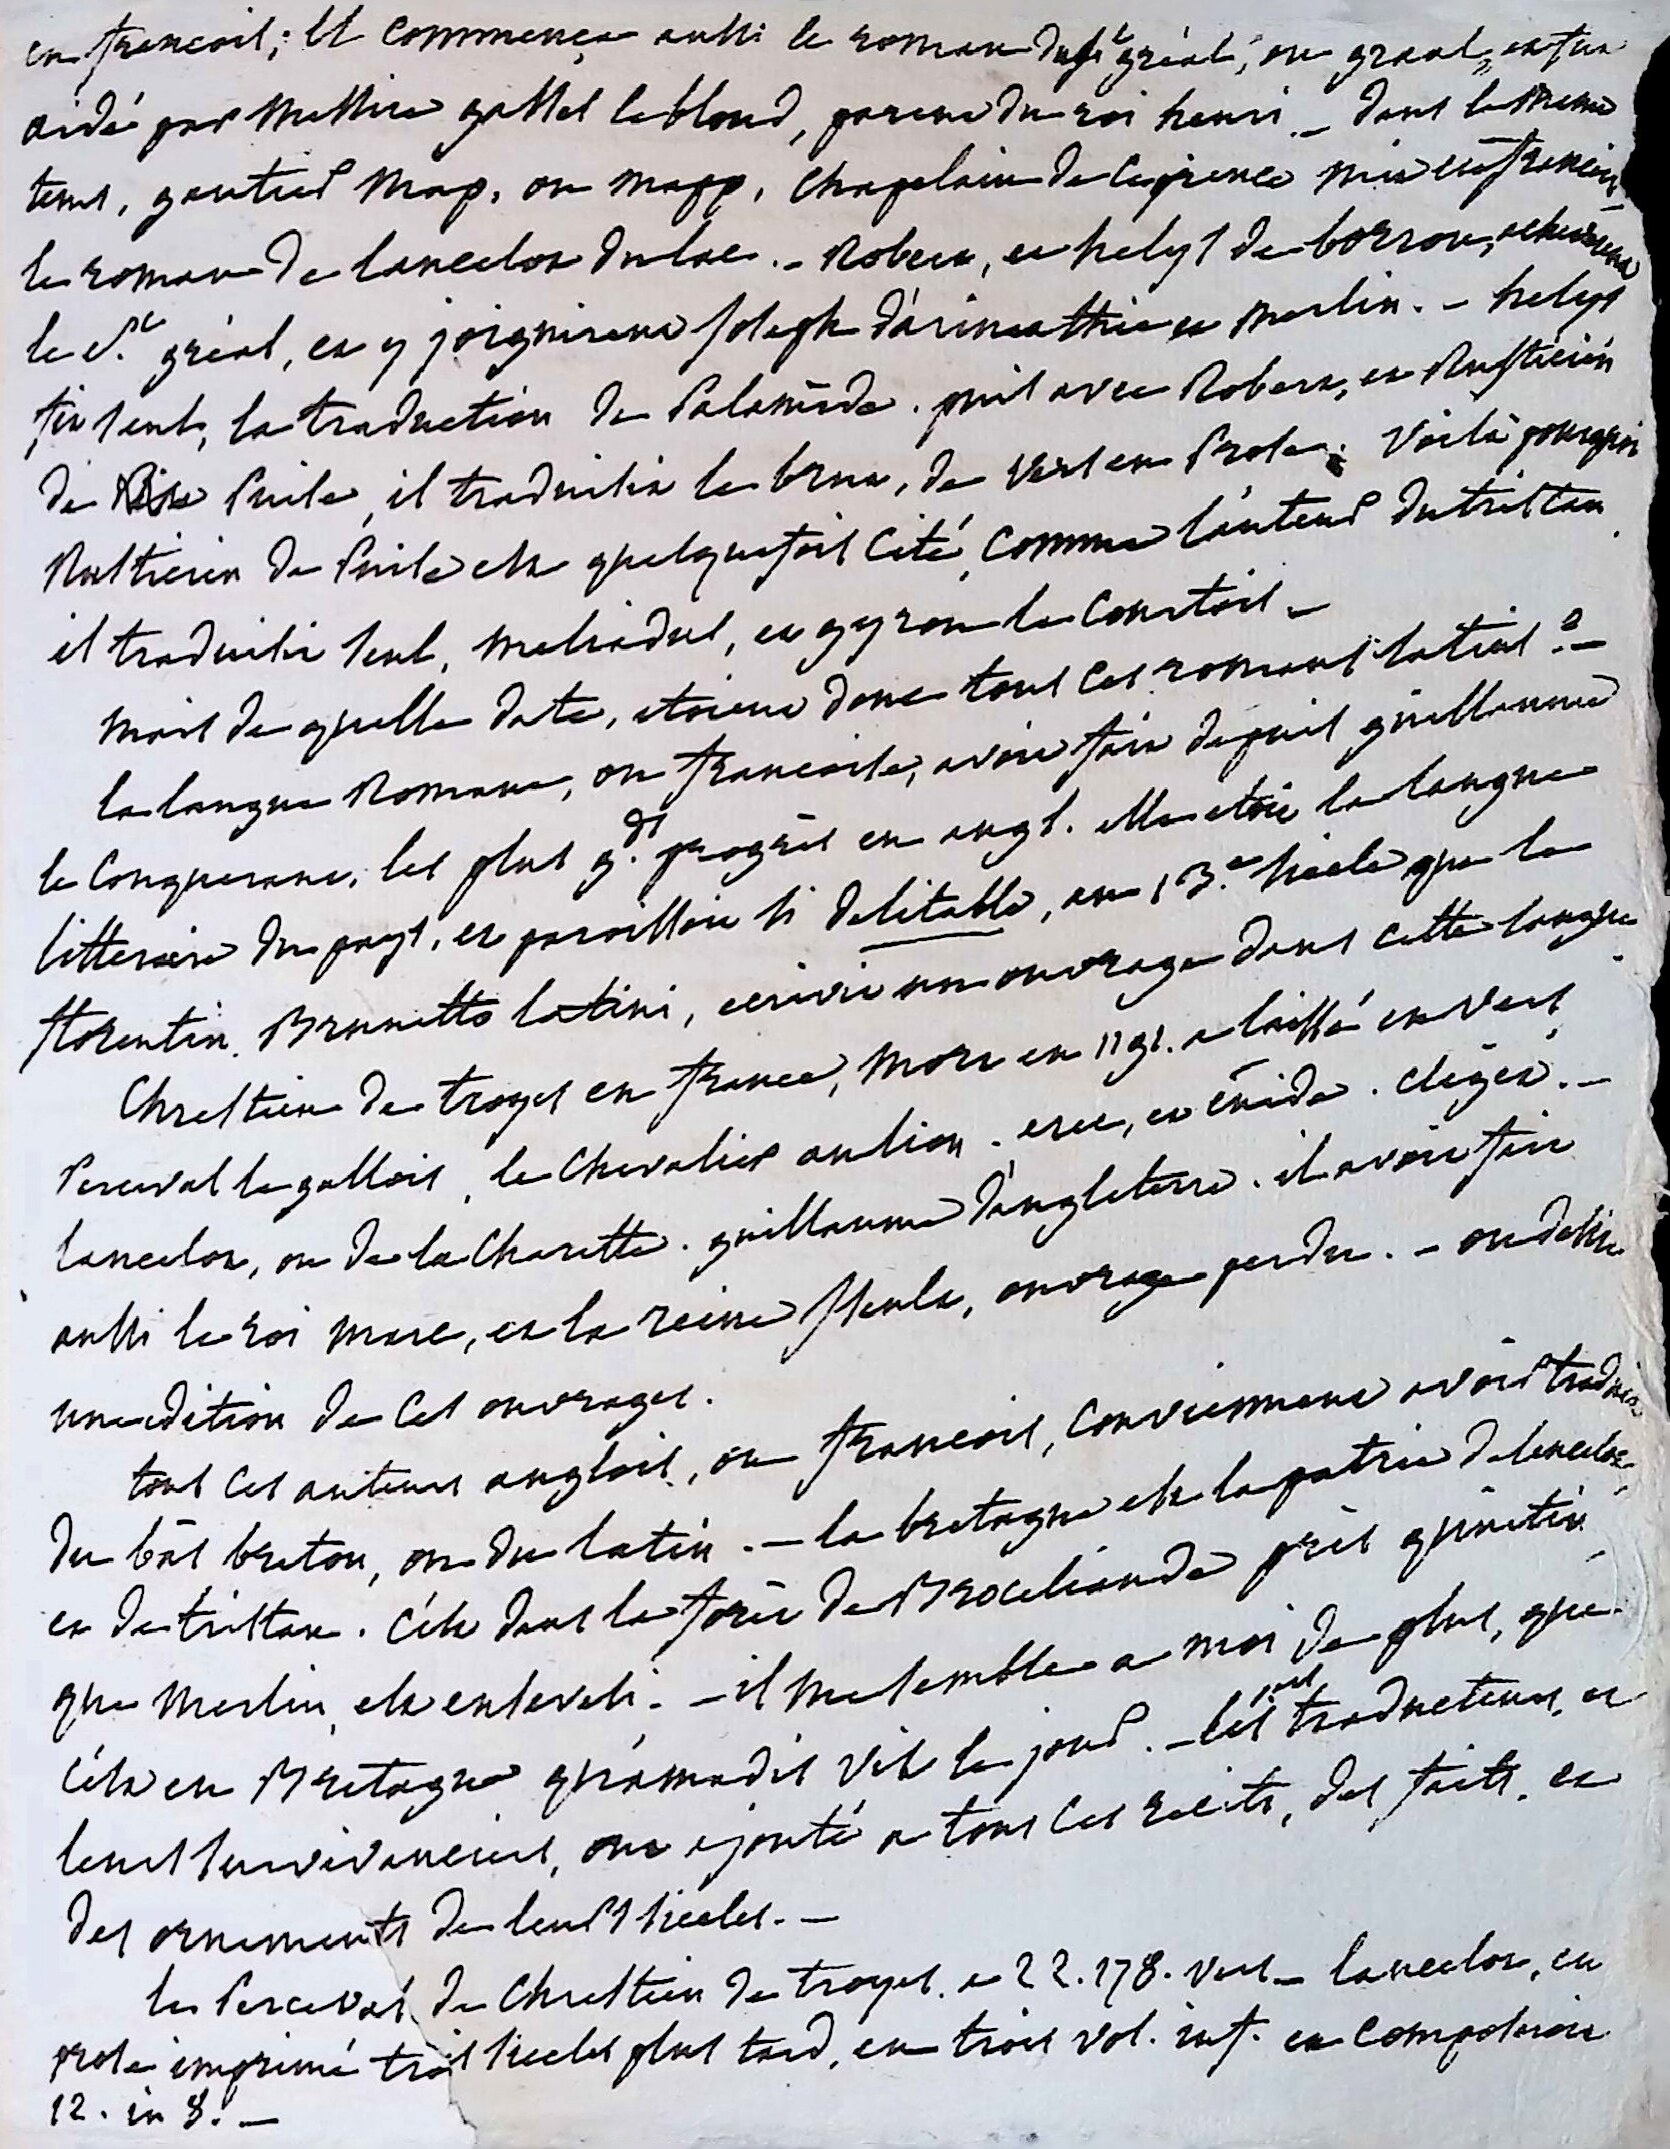 en françois; il commença aussi le roman du St gréal, ou graal, et fut
aidé par messire gasses le blond, parent du roi henri. – dans le meme
tems, gautier map, ou mapp, chapelain de ce prince mit en françois
le roman de lancelot du lac. – Robert, et helys de borron, acheverent
le St. gréal, et y joignirent joseph d'arimathie et merlin. – helys
fit seul, la traduction de Palamède. puis avec Robert, et Rusticien
de Puise, il traduisit le brut, de vers en prose. voilà pourquoi
Rusticien de Puise est quelquefois cité, comme l'auteur du tristan
il traduisit seul, meliadus, et gyron le courtois –
mais de quelle date, étoient donc tous ces romans latins? –
la langue Romane, ou françoise, avoit fait depuis guillaume
le conquerant, les plus gds. progrès en angl. elle etoit la langue
litteraire du pays, et paroissoit si delitable, au 13.e siecle que le
florentin Brunetto latini, ecrivit un ouvrage dans cette langue
Chrestien de troyes en france, mort en 1191. a laissé en vers,
Perceval le gallois, le chevalier au lion. erec, et énide. cligès. –
lancelot, ou de la charette. guillaume d'angleterre. il avoit fait
aussi le roi marc, et la reine Yseult, ouvrage perdu. – on desire
une edition de ces ouvrages.
tous ces auteurs anglois, ou françois, conviennent avoir traduit
du bas breton, ou du latin. – la bretagne est la patrie de lancelot,
et de tristan. c'est dans la forêt de Broceliande près quintin
que merlin, est enseveli. – il me semble a moi de plus, que
c'est en Bretagne qu'amadis vit le jour. – les traducteurs, et
leurs survivanciers, ont ajouté a tous ces recits, des faits, et
des ornements de leurs siecles. –
le Perceval de Chrestien de troyes, a 22.178. vers – lancelot, en
prose imprimé trois siecles plus tard, en trois vol. inf. en composeroit
12. in 8. –